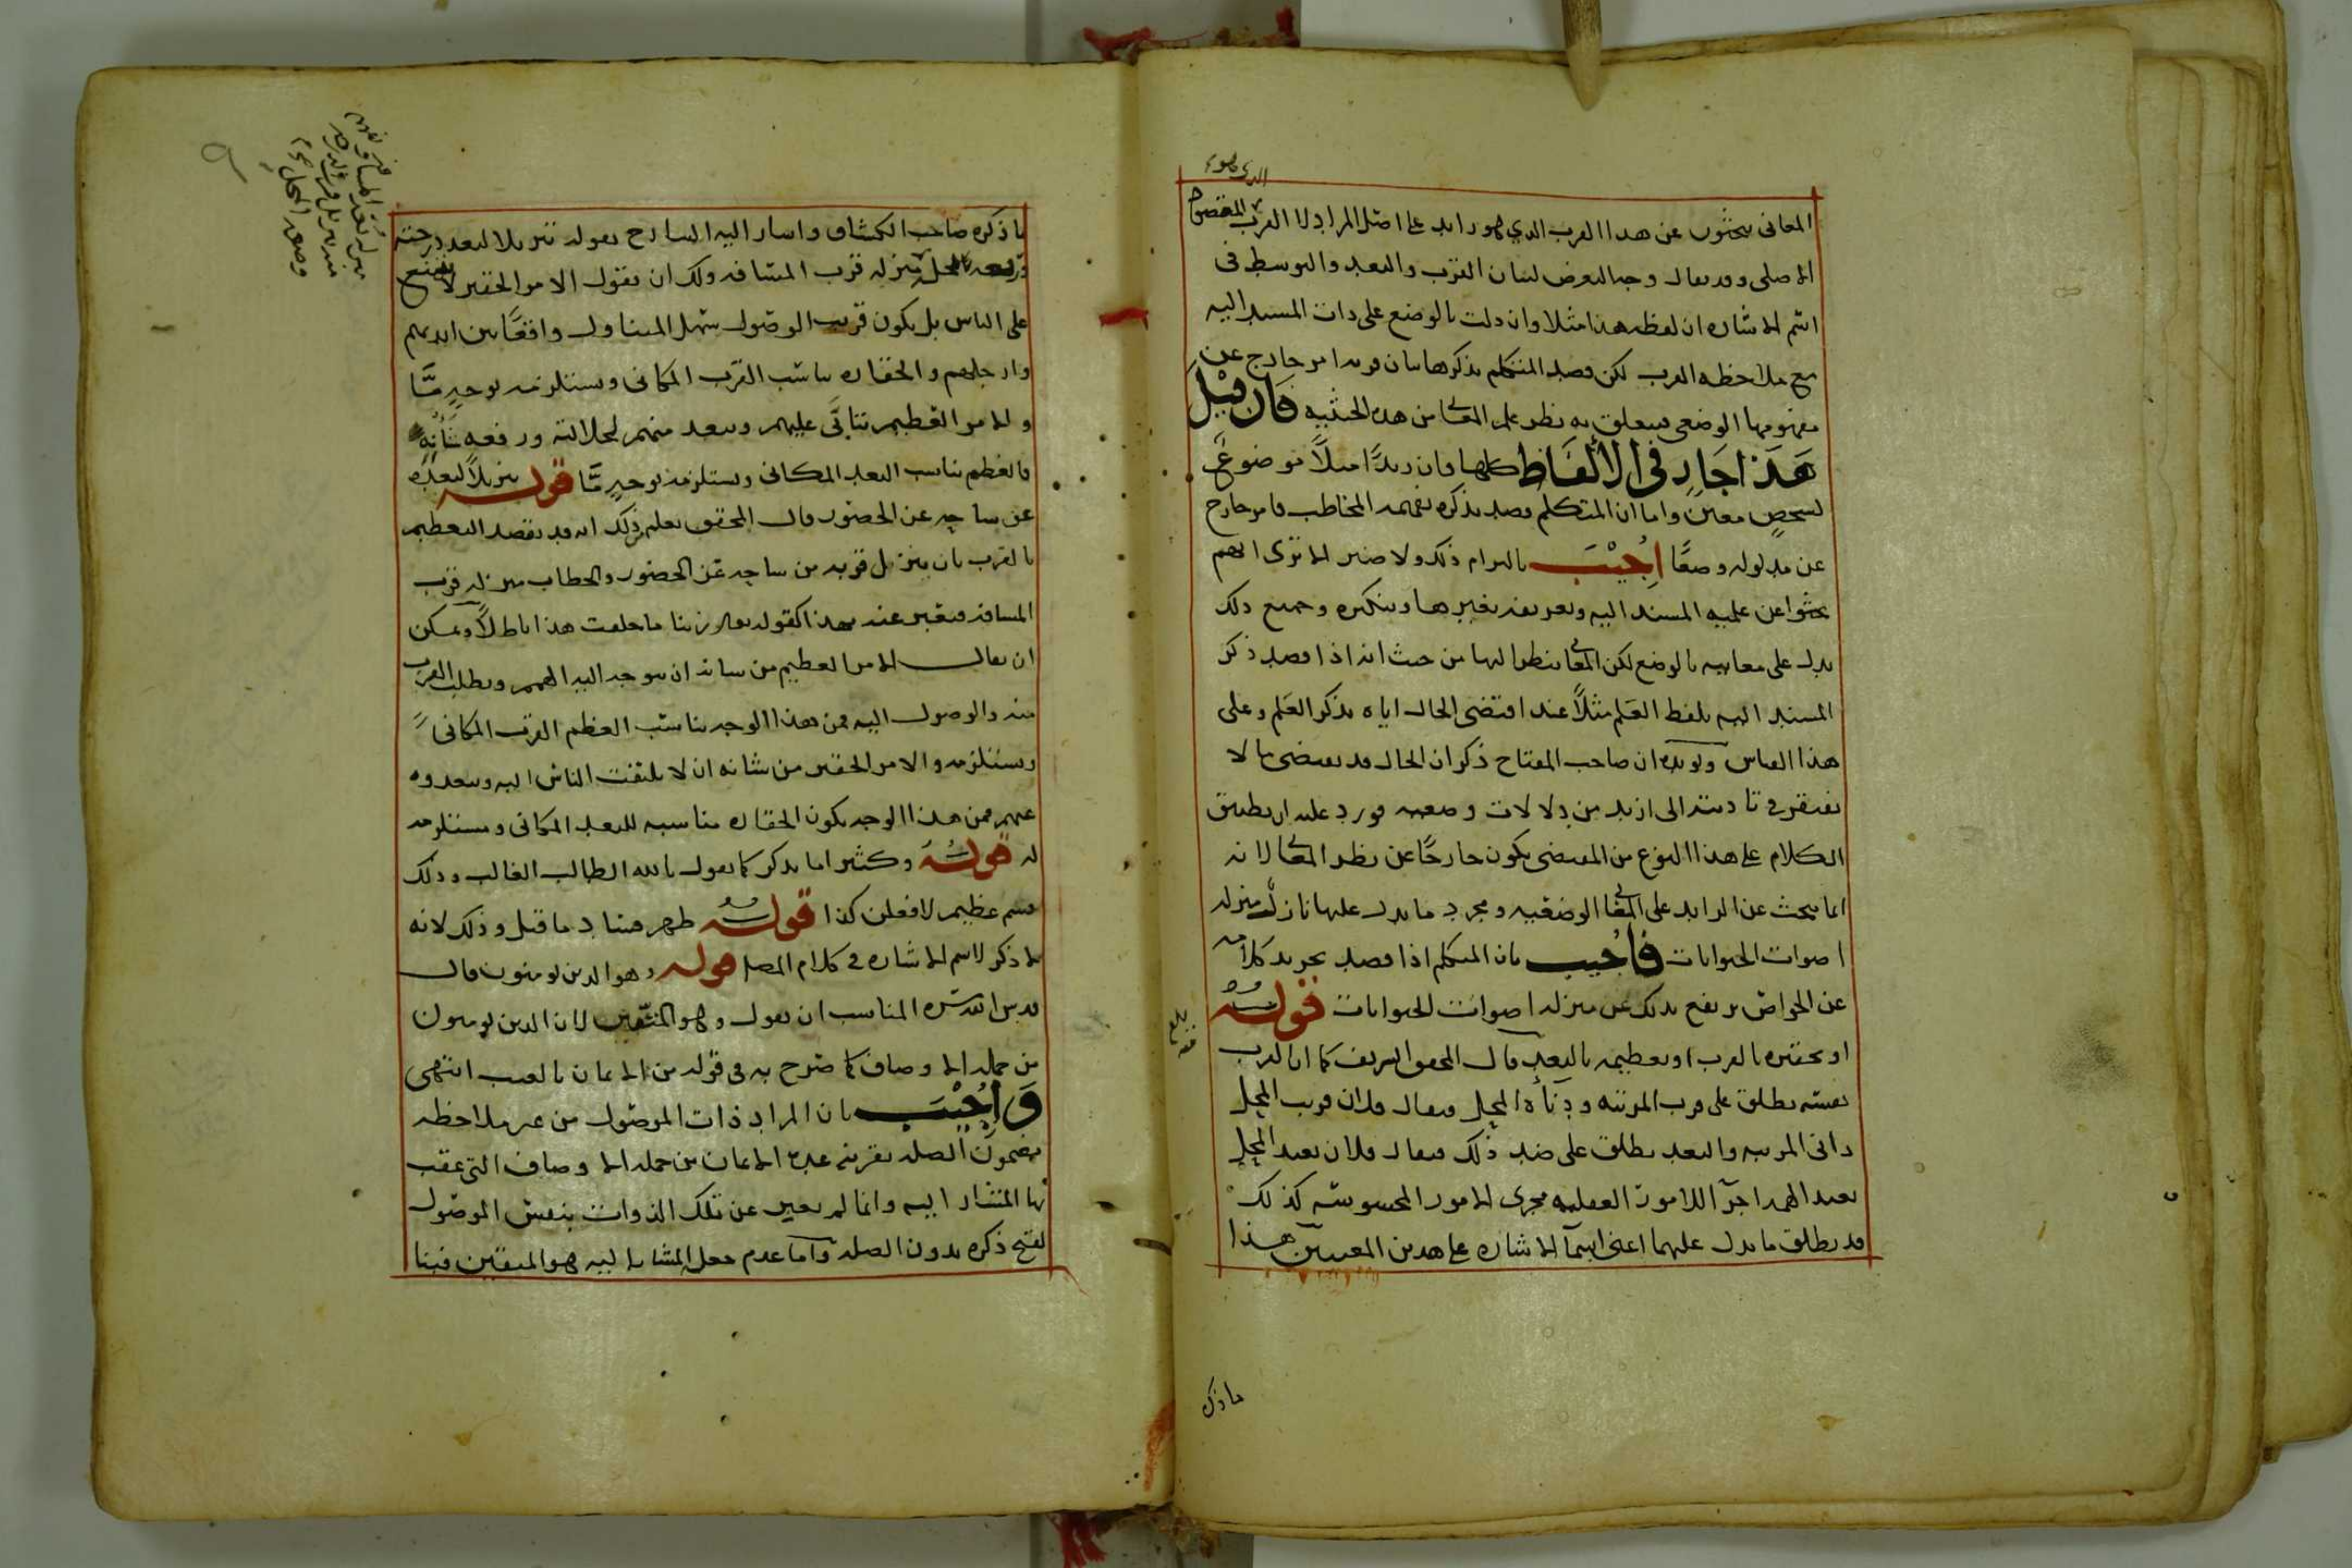 المعانى يبحثون عن هذا القرب الذي هو زايد على اصل المراد لا القرب المقصود
الاصلى وقد يقال وجه التعرض لبيان القرب والبعد والتوسط فى
اسم الاشاره ان لفظه هذا مثلا وان دلت بالوضع على ذات المسند اليه
مع ملاحظه القرب لكن قصد المتكلم بذكرها بيان قربه امر خارج عن
مفهومها الوضعى فيتعلق به نظر علم المعانى من هذه الحيثيه فان قيل
هذا جار فى الألفاظ كلها فان زيدًا مثلاً موضوع
لشخص معين واما ان المتكلم قصد بذكره تفهيمه المخاطب فامر خارج
عن مدلوله وضعًا اجيب بالتزام ذلك ولا ضير الا ترى انهم
بحثوا عن علميه المسند اليه وتعريفه بغيرها وتنكيره وجميع ذلك
يدل على معانيه بالوضع لكن المعانى ينظر اليها من حيث انه اذا قصد ذكر
المسند اليه بلفظ العلم مثلاً عند اقتضى الحال اياه يذكر العلم وعلى
هذا القياس ويؤيده ان صاحب المفتاح ذكر ان الحال قد يقتضى ما لا
يفتقر فى تاديته الى ازيد من دلالات وضعيه فورد عليه ان تطبيق
الكلام على هذا النوع من المقتضى يكون خارجًا عن نظر المعانى لانه
انما يبحث عن الزايد على المعانى الوضعيه ومجرد ما يدل عليها نازل منزله
اصوات الحيوانات فاجيب بان المتكلم اذا قصد تجريد كلامه
عن الخواص يرتفع بذلك عن منزله اصوات الحيوانات قوله
او تحقيره بالقرب او تعظيمه بالبعد قال المحقق الشريف كما ان القرب
نفسه يطلق على قرب المرتبه ودناءة المحل فيقال فلان قريب المحل
دانى المرتبه والبعد يطلق على ضد ذلك فيقال فلان بعيد المحل
بعيد الهمه اجراء للامور العقليه مجرى الامور المحسوسه كذلك
قد يطلق ما يدل عليهما اعنى اسماء الاشاره على هذين المعنيين هذا
ما ذك
ما ذكره صاحب الكشاف واشار اليه الشارح بقوله تنزيلا لبعد درجته
ورفعه محله منزله قرب المسافه ولك ان تقول الامر الحقير لا يمتنع
على الناس بل يكون قريب الوصول سهل المتناول واقعًا بين ايديهم
وارجلهم والحقاره تناسب القرب المكانى وتستلزمه بوجه مّا
والامر العظيم يتابّى عليهم ويبعد منهم لجلالته ورفعه شأنه
فالعظم يناسب البعد المكانى ويستلزمه بوجه مّا قوله تنزيلاً لبعده
عن ساحه عن الحضور قال المحقق يعلم من ذلك انه قد يقصد التعظيم
بالقرب بان ينزل قربه من ساحه عن الحضور والخطاب منزله قرب
المسافه فيعبر عنه بهذا كقوله تعالى ربنا ما خلقت هذا باطلاً ويمكن
ان يقال الامر العظيم من شانه ان يتوجه اليه الهمم ويطلب القرب
منه والوصول اليه فمن هذا الوجه يناسب العظم القرب المكانى
ويستلزمه والامر الحقير من شانه ان لا يلتفت الناس اليه ويبعدوه
عنهم فمن هذا الوجه يكون الحقاره مناسبه للبعد المكانى ومستلزمه
له قوله وكثيرا ما يذكر كما يقول بالله الطالب الغالب وذلك
قسم عظيم لافعلن كذا قوله ظهر فساد ما قيل وذلك لانه
لا ذكر لاسم الاشاره فى كلام المص قوله وهو الذين يؤمنون قال
قدس الله سره المناسب ان يقول وهو المتقين لان الذين يؤمنون
من جمله الاوصاف كما صرح به فى قوله من الايمان بالغيب انتهى
وأجيب بان المراد ذات الموصول من غير ملاحظه
مضمون الصله بقرينه عده الايمان من جمله الاوصاف التى عقب
بها المشار اليه وانما لم يعبر عن تلك الذوات بنفس الموصول
لقبح ذكره بدون الصله واما عدم جعل المشار اليه هو المتقين فبنا